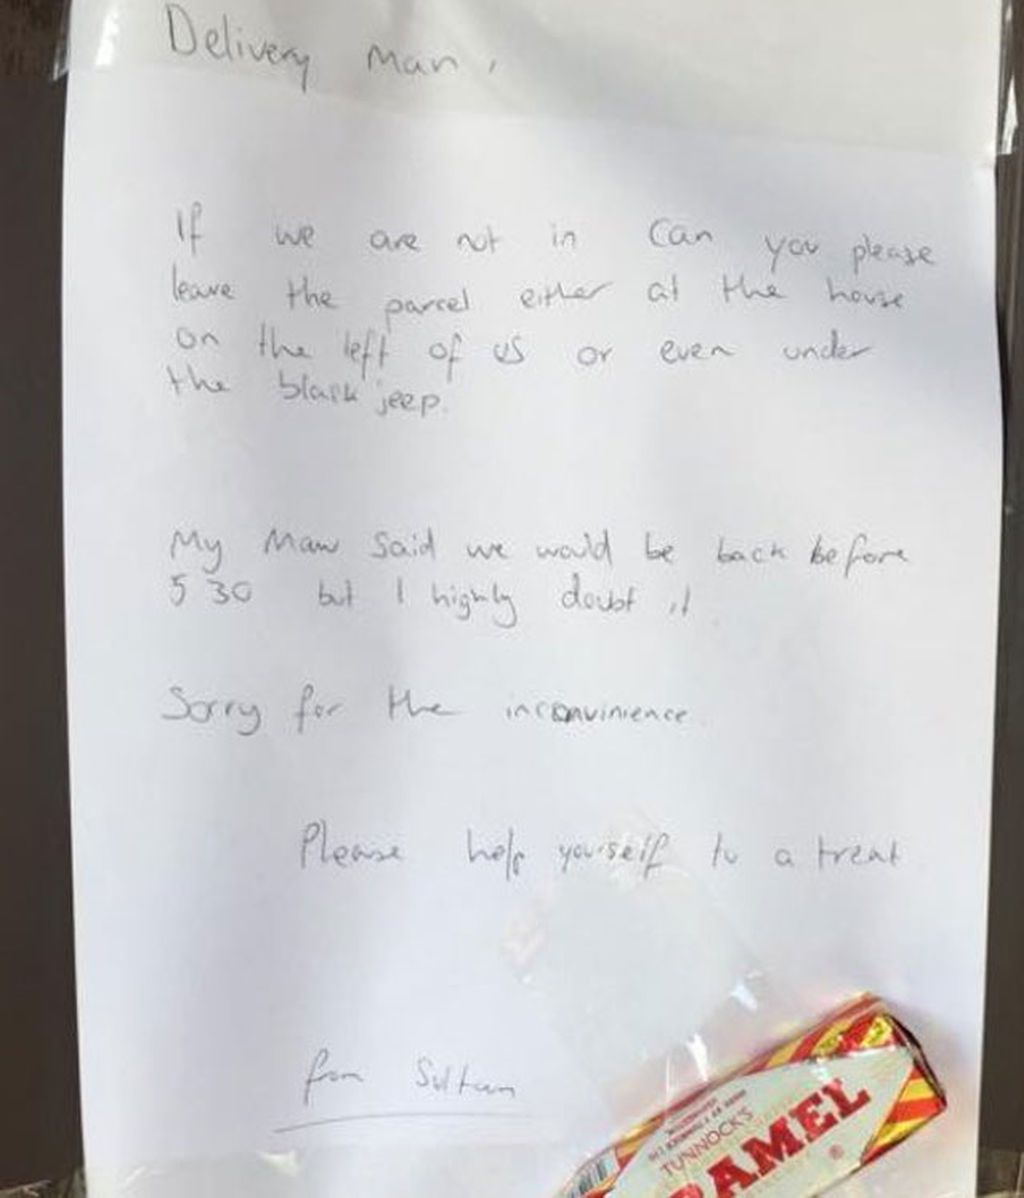 Delivery man,
If we are not in can you please
leave the parcel either at the house
on the left of us or even under
the black jeep.
My Maw said we would be back before
5 30 but I highly doubt it
Sorry for the inconvinience
Please help yourself to a treat
from Sultan
TUNNOCK'S
AMEL